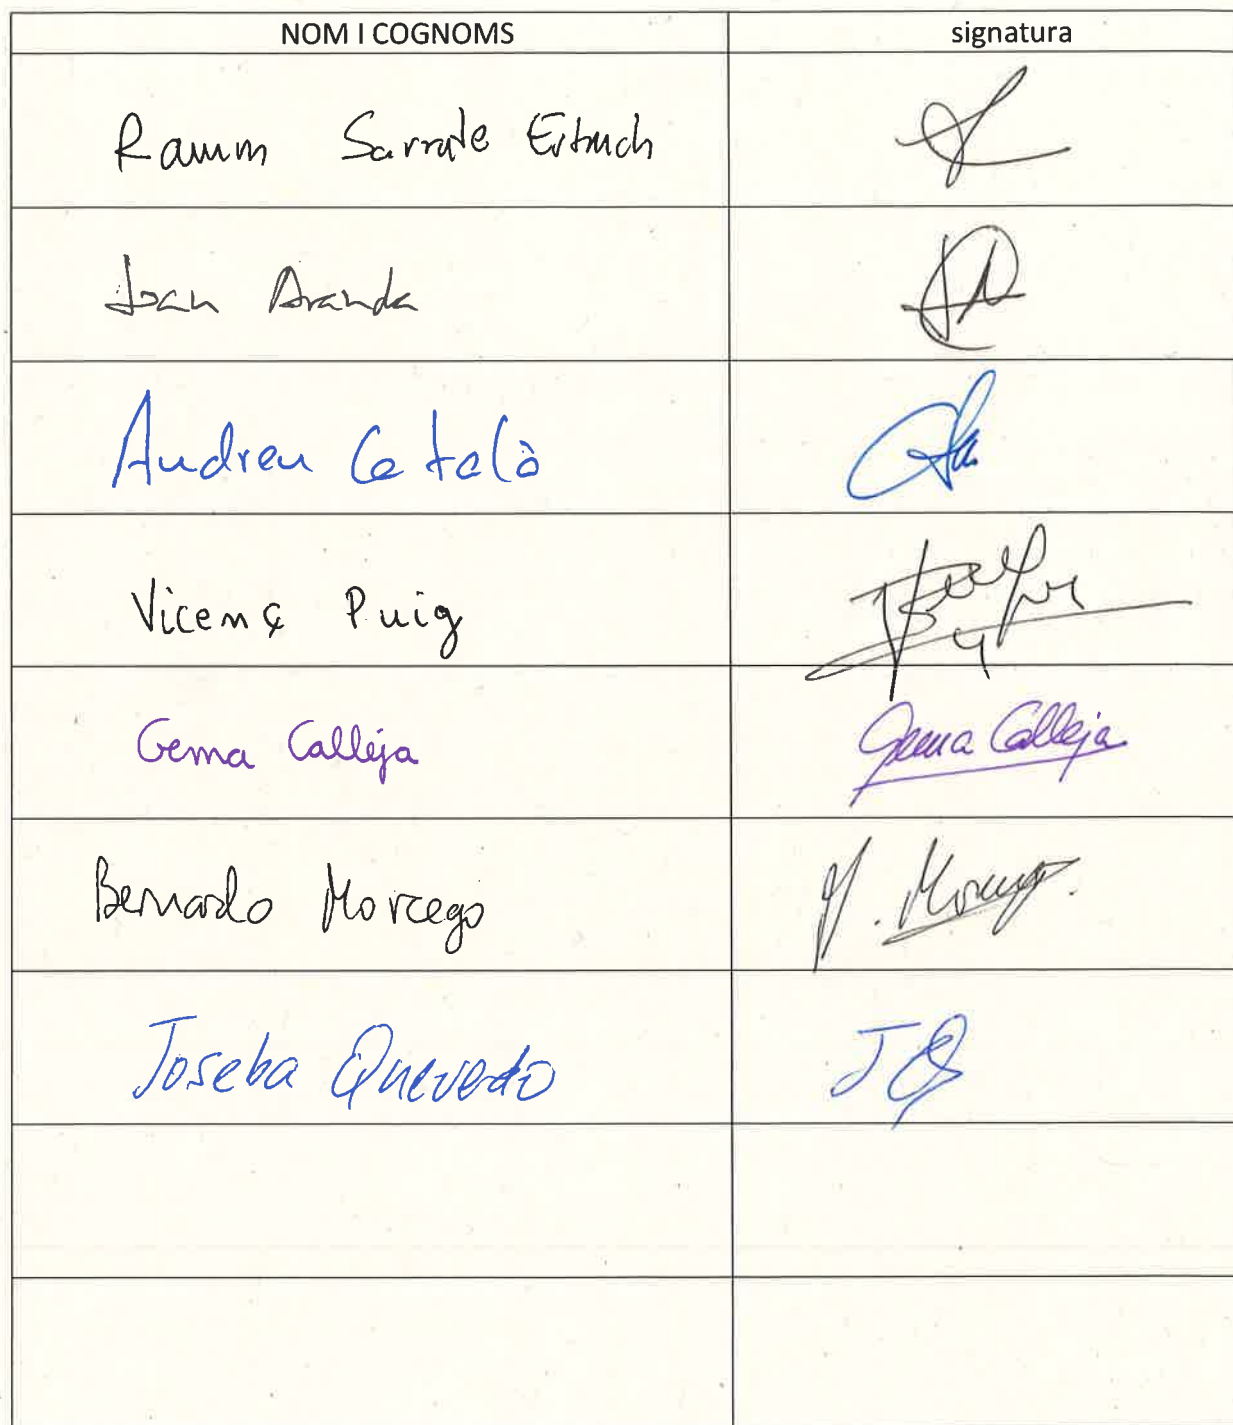 NOM I COGNOMS signatura
Ramon Sarrate Estruch
Joan Aranda
Andreu Català
Vicenç Puig
Gema Calleja Gema Calleja
Bernardo Morcego M. Morcego.
Joseba Quevedo JQ